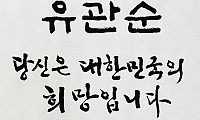 유관순
당신은 대한민국의
희망입니다